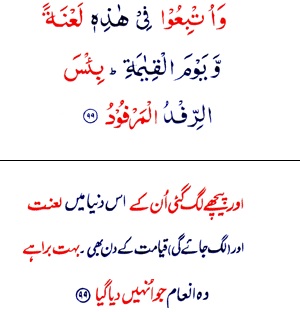 وَاُتْبِعُوْا فِیْ هٰذِهٖ لَعْنَةً
وَّیَوْمَ الْقِیٰمَةِ ؕ بِئْسَ
الرِّفْدُ الْمَرْفُوْدُ ﴿۹۹﴾
اور پیچھے لگ گئی اُن کے اس دنیا میں لعنت
اور (لگ جائے گی) قیامت کے دن بھی ۔ بہت برا ہے
وہ انعام جو اُنہیں دیا گیا ﴿۹۹﴾